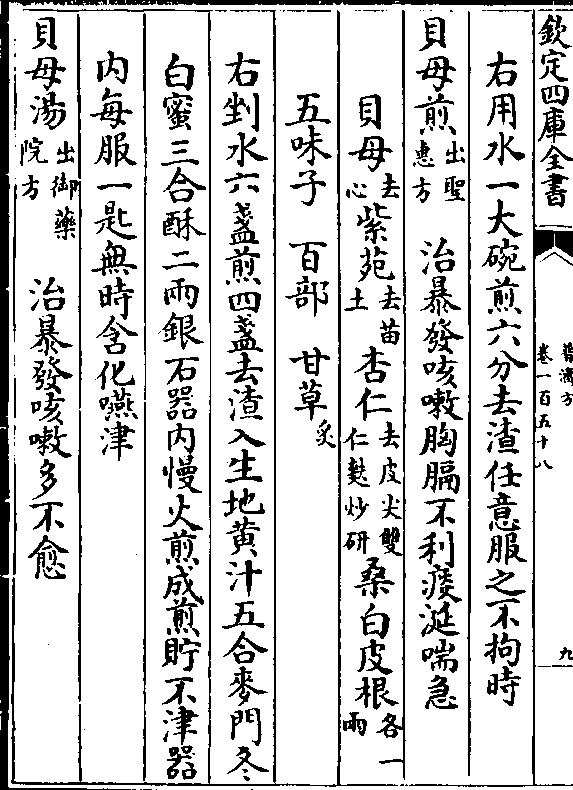 欽定四庫全書
普濟方
卷一百五十八
九
右用水一大碗煎六分去渣任意服之不拘時
貝母煎出聖惠方　治暴發咳嗽胸膈不利痰涎喘急
貝母去心紫苑去苗土杏仁去皮尖雙仁麩炒研桑白皮根各一兩
五味子　百部　甘草炙
右剉水六盞煎四盞去渣入生地黄汁五合麥門冬
白蜜三合酥二兩銀石器内慢火煎成煎貯不津器
内每服一匙無時含化嚥津
貝母湯出御藥院方　治暴發咳嗽多不愈